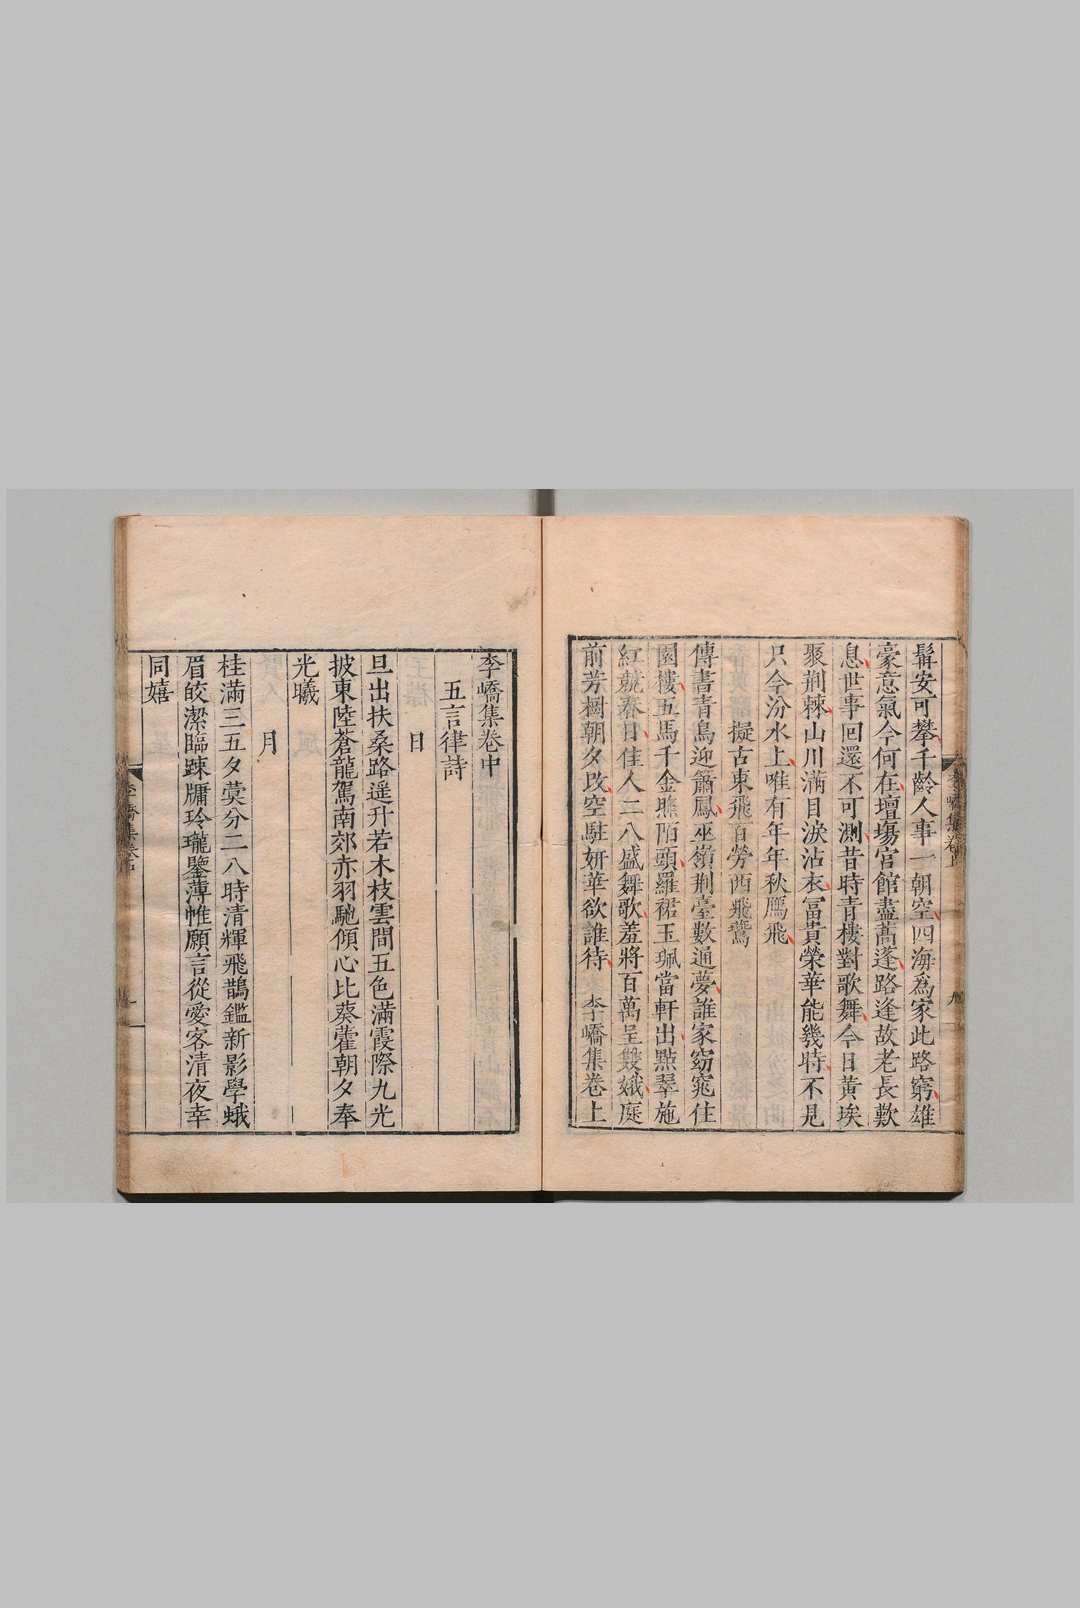 髯安可攀千齡人事一朝空四海爲家此路窮雄
豪意氣今何在壇塲宮館盡蒿蓬路逢故老長歎
息世事回還不可測昔時青樓對歌舞今日黃埃
聚荆棘山川滿目淚沾衣冨貴榮華能幾時不見
只今汾水上唯有年年秋鴈飛
擬古東飛百勞西飛鷰
傳書青鳥迎簫鳳巫嶺荆臺數通夢誰家窈窕住
園樓五馬千金照陌頭羅裙玉珮當軒出㸃翠施
紅競春日佳人二八盛舞歌羞將百萬呈雙蛾庭
前芳樹朝夕改空駐妍華欲誰待
李嶠集卷上
李嶠集卷上
九
李嶠集卷中
五言律詩
日
旦出扶桑路遥升若木枝雲間五色滿霞際九光
披東陸蒼龍駕南郊赤羽馳傾心比葵藿朝夕奉
光曦
月
桂滿三五夕蓂分二八時清輝飛鵲鑑新影學蛾
眉皎潔臨踈牖玲瓏鑒薄帷願言從愛客清夜幸
同嬉
李嶠集卷中
一